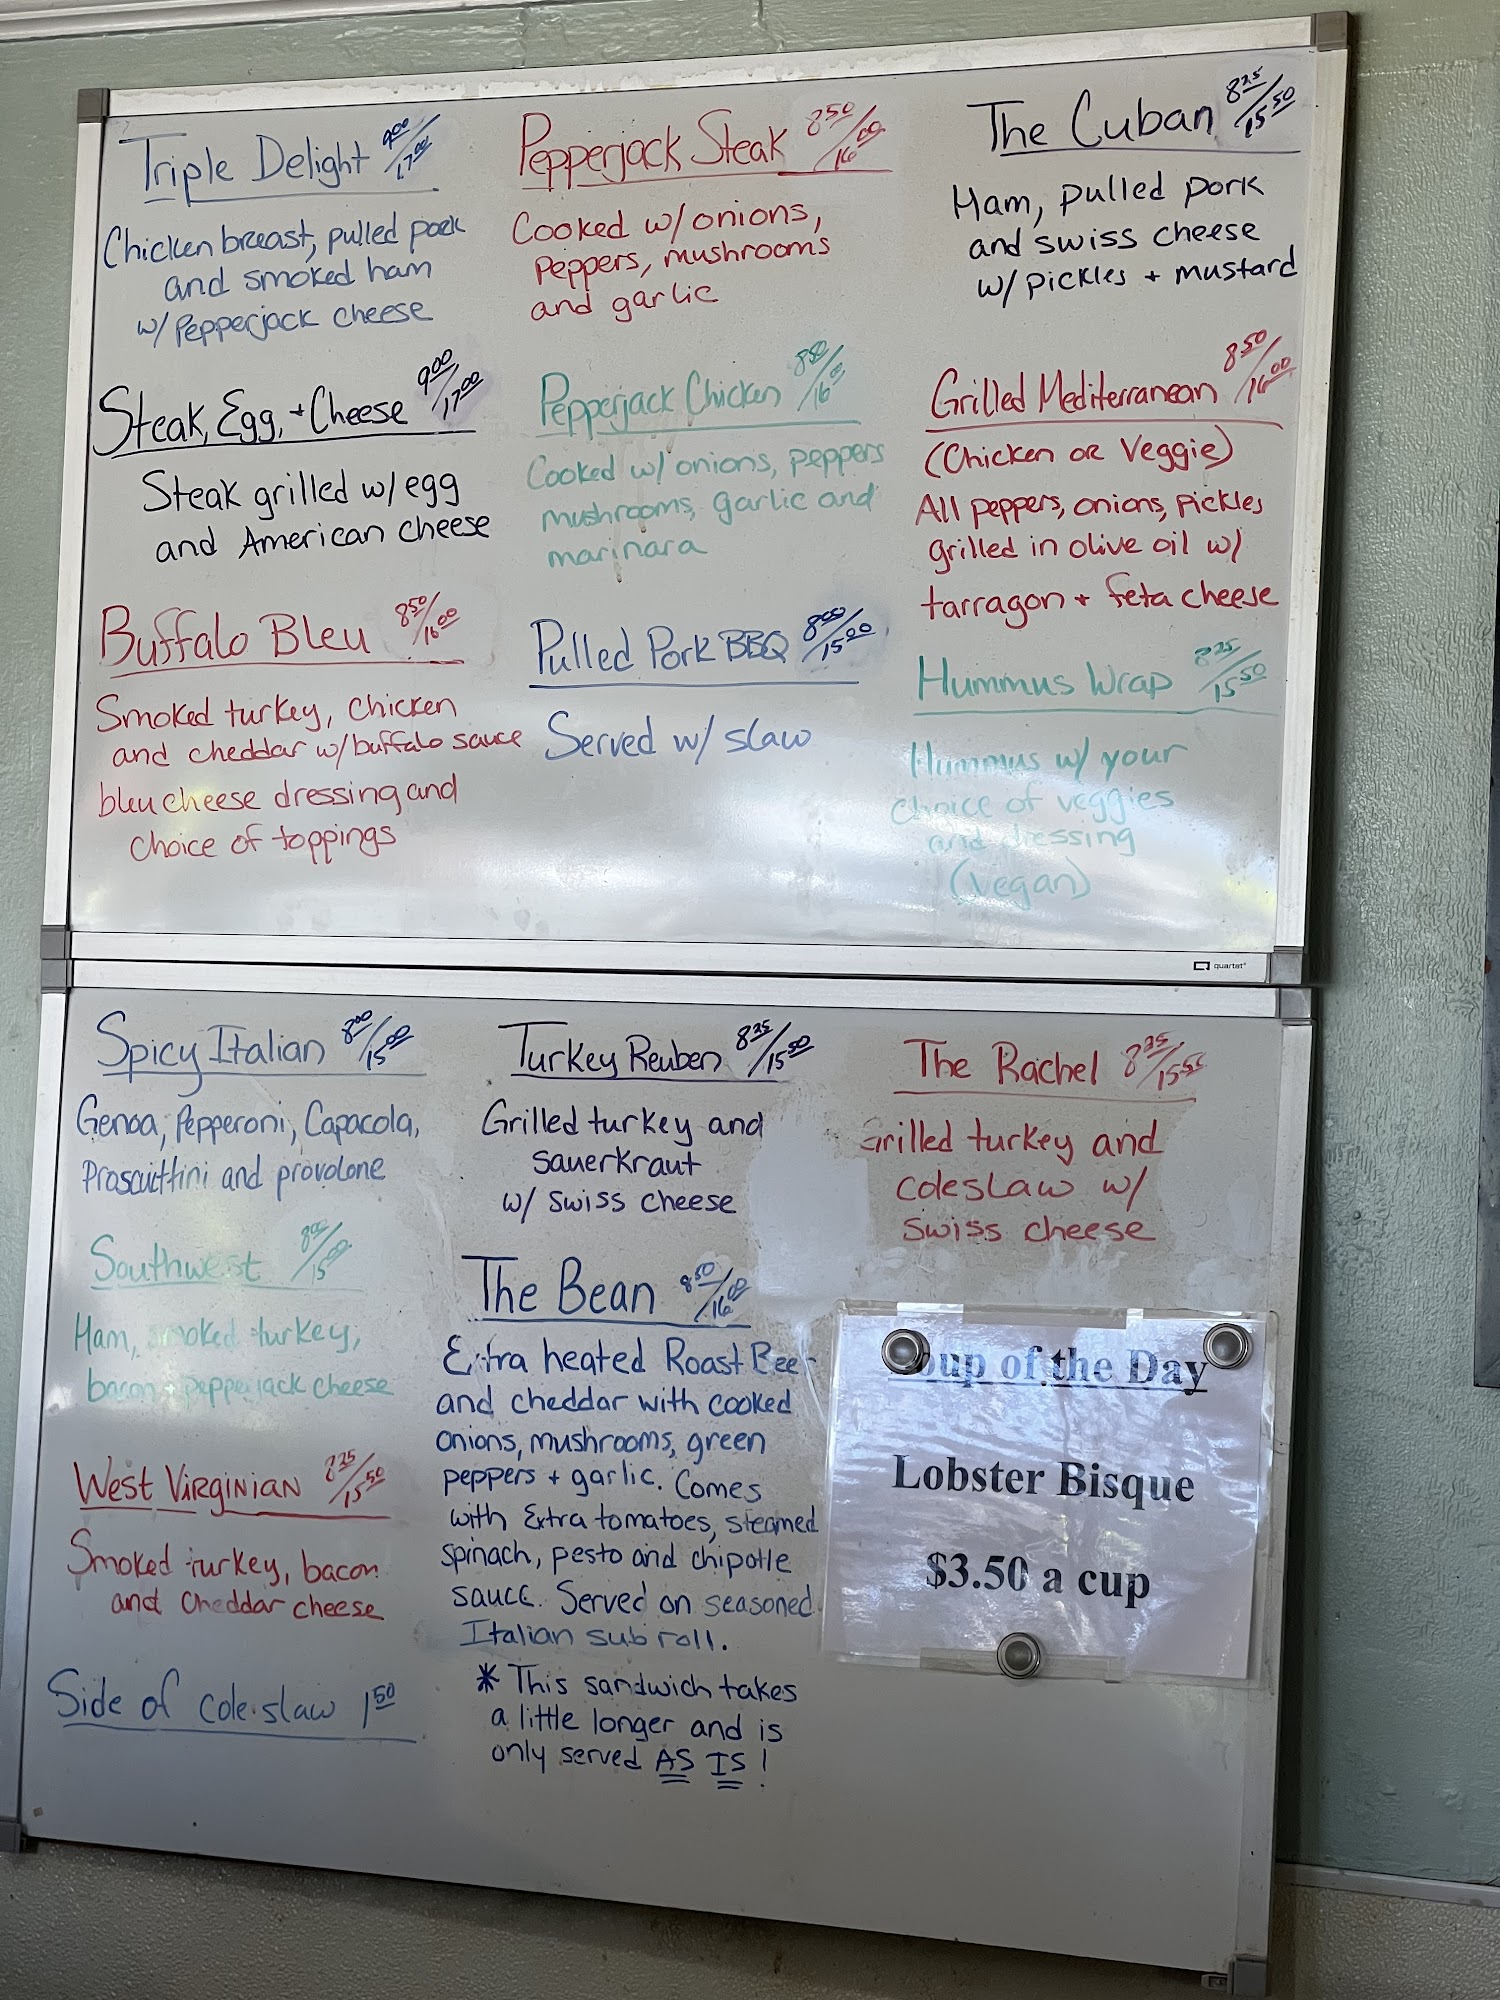 Triple Delight 9.00/17.00
Chicken breast, pulled pork
and smoked ham
w/ Pepperjack cheese
Steak, Egg, + Cheese 9.00/17.00
Steak grilled w/ egg
and American cheese
Buffalo Bleu 8.50/16.00
Smoked turkey, chicken
and cheddar w/ buffalo sauce
bleu cheese dressing and
choice of toppings
Pepperjack Steak 8.50/16.00
Cooked w/ onions,
Peppers, mushrooms
and garlic
Pepperjack Chicken 8.50/16.00
Cooked w/ onions, peppers
mushrooms, garlic and
marinara
Pulled Pork BBQ 8.00/15.00
Served w/ slaw
The Cuban 8.25/15.50
Ham, pulled pork
and swiss cheese
w/ pickles + mustard
Grilled Mediterranean 8.50/16.00
(Chicken or Veggie)
All peppers, onions, pickles
grilled in olive oil w/
tarragon + feta cheese
Hummus Wrap 8.25/15.50
Hummus w/ your
choice of veggies
and dressing
(vegan)
quartet
Spicy Italian 8.00/15.00
Genoa, Pepperoni, Capacola,
Proscuittini and provolone
Southwest 8.00/15.00
Ham, smoked turkey,
bacon + pepperjack cheese
West Virginian 8.25/15.50
Smoked turkey, bacon
and cheddar cheese
Side of cole slaw 1.50
Turkey Reuben 8.25/15.50
Grilled turkey and
sauerkraut
w/ swiss cheese
The Bean 8.50/16.00
Extra heated Roast Beef
and cheddar with cooked
onions, mushrooms, green
peppers + garlic. Comes
with Extra tomatoes, steamed
spinach, pesto and chipotle
sauce. Served on seasoned
Italian sub roll.
* This sandwich takes
a little longer and is
only served AS IS!
The Rachel 8.25/15.50
Grilled turkey and
coleslaw w/
swiss cheese
Soup of the Day
Lobster Bisque
$3.50 a cup